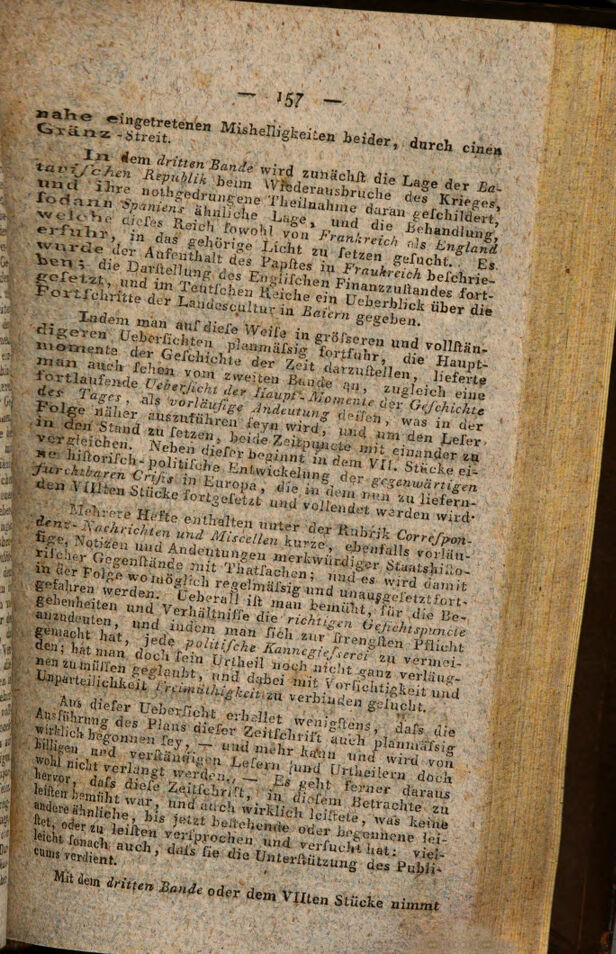 — 157 —
nahe eingetretenen Mishelligkeiten beider, durch einen
Gränz-Streit.
In dem dritten Bande wird zunächſt die Lage der Ba-
taviſchen Republik beim Wiederausbruche des Krieges,
und ihre nothgedrungene Theilnahme daran geſchildert,
ſodann Spaniens ähnliche Lage, und die Behandlung,
welche dieſes Reich ſowohl von Frankreich als England
erfuhr, in das gehörige Licht zu ſetzen geſucht. Es
wurde der Aufenthalt des Papſtes in Fraukreich beſchrie-
ben; die Darſtellung des Engliſchen Finanzzuſtandes fort-
geſetzt, und im Teutſchen Reiche ein Ueberblick über die
Fortſchritte der Landescultur in Baiern gegeben.
Indem man auf dieſe Weiſe in gröſseren und vollſtän-
digeren Ueberſichten planmäſsig fortfuhr, die Haupt-
momente der Geſchichte der Zeit darzuſtellen, lieferte
man auch ſchon vom zweiten Bande an, zugleich eine
fortlaufende Ueberſicht der Haupt-Momente der Geſchichte
des Tages, als vorläufige Andeutung deſſen, was in der
Folge näher auszuführen ſeyn wird, und um den Leſer
in den Stand zu ſetzen, beide Zeitpuncte mit einander zu
vergleichen. Neben dieſer beginnt in dem VII. Stücke ei-
ne hiſtoriſch-politiſche Entwickelung der gegenwärtigen
furchtbaren Criſis in Europa, die in dem nun zu liefern-
den VIIIten Stücke fortgeſetzt und vollendet werden wird.
Mehrere Hefte enthalten unter der Rubrik Correſpon-
denz-Nachrichten und Miscellen kurze, ebenfalls vorläu-
fige, Notizen und Andeutungen merkwürdiger Staatshiſto-
riſcher Gegenſtände mit Thatſachen; und es wird damit
in der Folge wo möglich regelmäſsig und unausgeſetzt fort-
gefahren werden. Ueberall iſt man bemüht, für die Be-
gebenheiten und Verhältniſſe die richtigen Geſichtspuncte
anzudeuten, und indem man ſich zur ſtrengſten Pflicht
gemacht hat, jede politiſche Kannegieſserei zu vermei-
den; hat man doch ſein Urtheil noch nicht ganz verläug-
nen zu müſſen geglaubt, und dabei mit Vorſichtigkeit und
Unparteilichkeit Freimüthigkeit zu verbinden geſucht.
Aus dieſer Ueberſicht erhellet wenigſtens, daſs die
Ausführung des Plans dieſer Zeitſchrift auch planmäſsig
wirklich begonnen ſey, — und mehr kann und wird von
billigen und verſtändigen Leſern und Urtheilern doch
wohl nicht verlangt werden. — Es geht ferner daraus
hervor, daſs dieſe Zeitſchrift, in dieſem Betrachte zu
leiſten bemüht war, und auch wirklich leiſtete, was keine
andere ähnliche, bis jetzt beſtehende oder begonnene lei-
ſtet, oder zu leiſten verſprochen und verſucht hat: viel-
leicht ſonach auch, daſs ſie die Unterſtützung des Publi-
cums verdient.
Mit dem dritten Bande oder dem VIIten Stücke nimmt